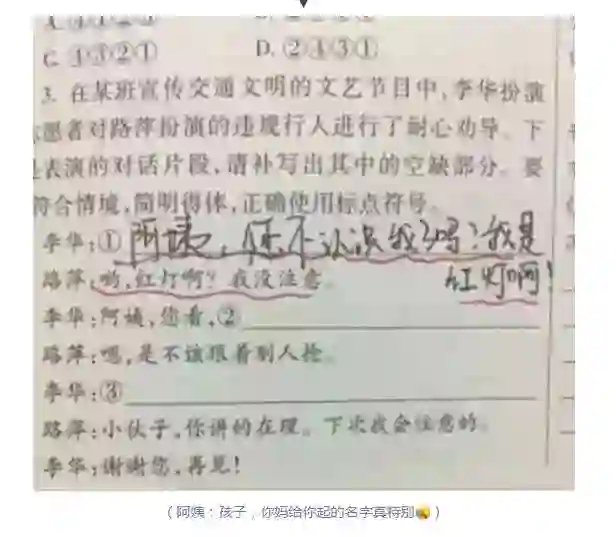 C. ④③②①
D. ②④③①
3. 在某班宣传交通文明的文艺节目中,李华扮演
愿者对路萍扮演的违规行人进行了耐心劝导。下
是表演的对话片段,请补写出其中的空缺部分。要
符合情境,简明得体,正确使用标点符号。
李华:① 阿姨,你不认识我了吗?我是
红灯啊!
路萍:哟,红灯啊?我没注意。
李华:阿姨,您看,②
路萍:嗯,是不该跟着别人抢。
李华:③
路萍:小伙子,你讲的在理。下次我会注意的。
李华:谢谢您,再见!
(阿姨:孩子,你妈给你起的名字真特别😜)